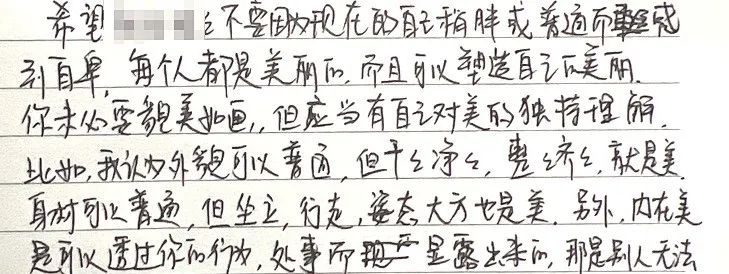 希望 不要因为现在的自己稍胖或普通而感
到自卑，每个人都是美丽的，而且可以塑造自己的美丽，
你未必要貌美如画，但应当有自己对美的独特理解，
比如，我认为外貌可以普通，但干干净净，整整齐齐，就是美，
身材可以普通，但坐立，行走，姿态大方也是美，另外，内在美
是可以透过你的行为，处事而呈露出来的，那是别人无法